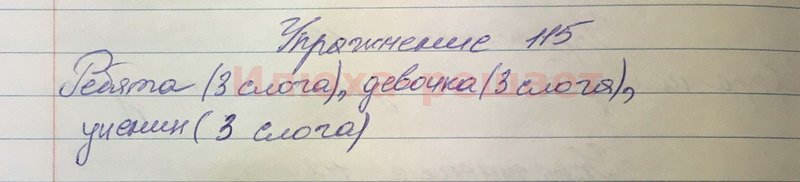 Упражнение 115
Ребята (3 слога), девочка (3 слога),
ученик (3 слога)
Илюха решает